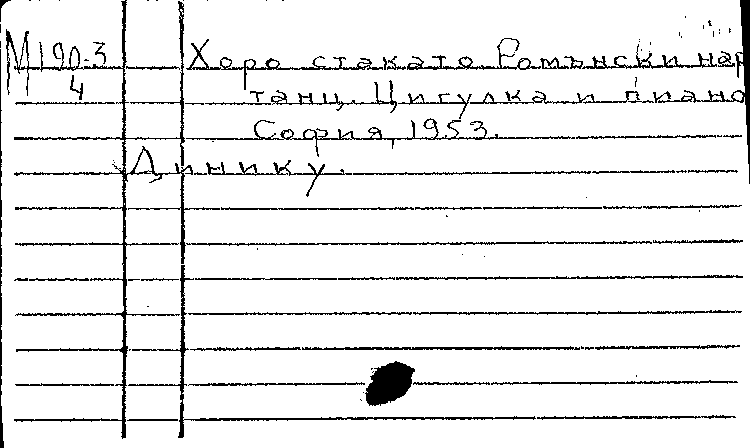 М190.3 Хоро стакато Ромънски нар
4 танц. Цигулка и пиано
София, 1953.
Динику.